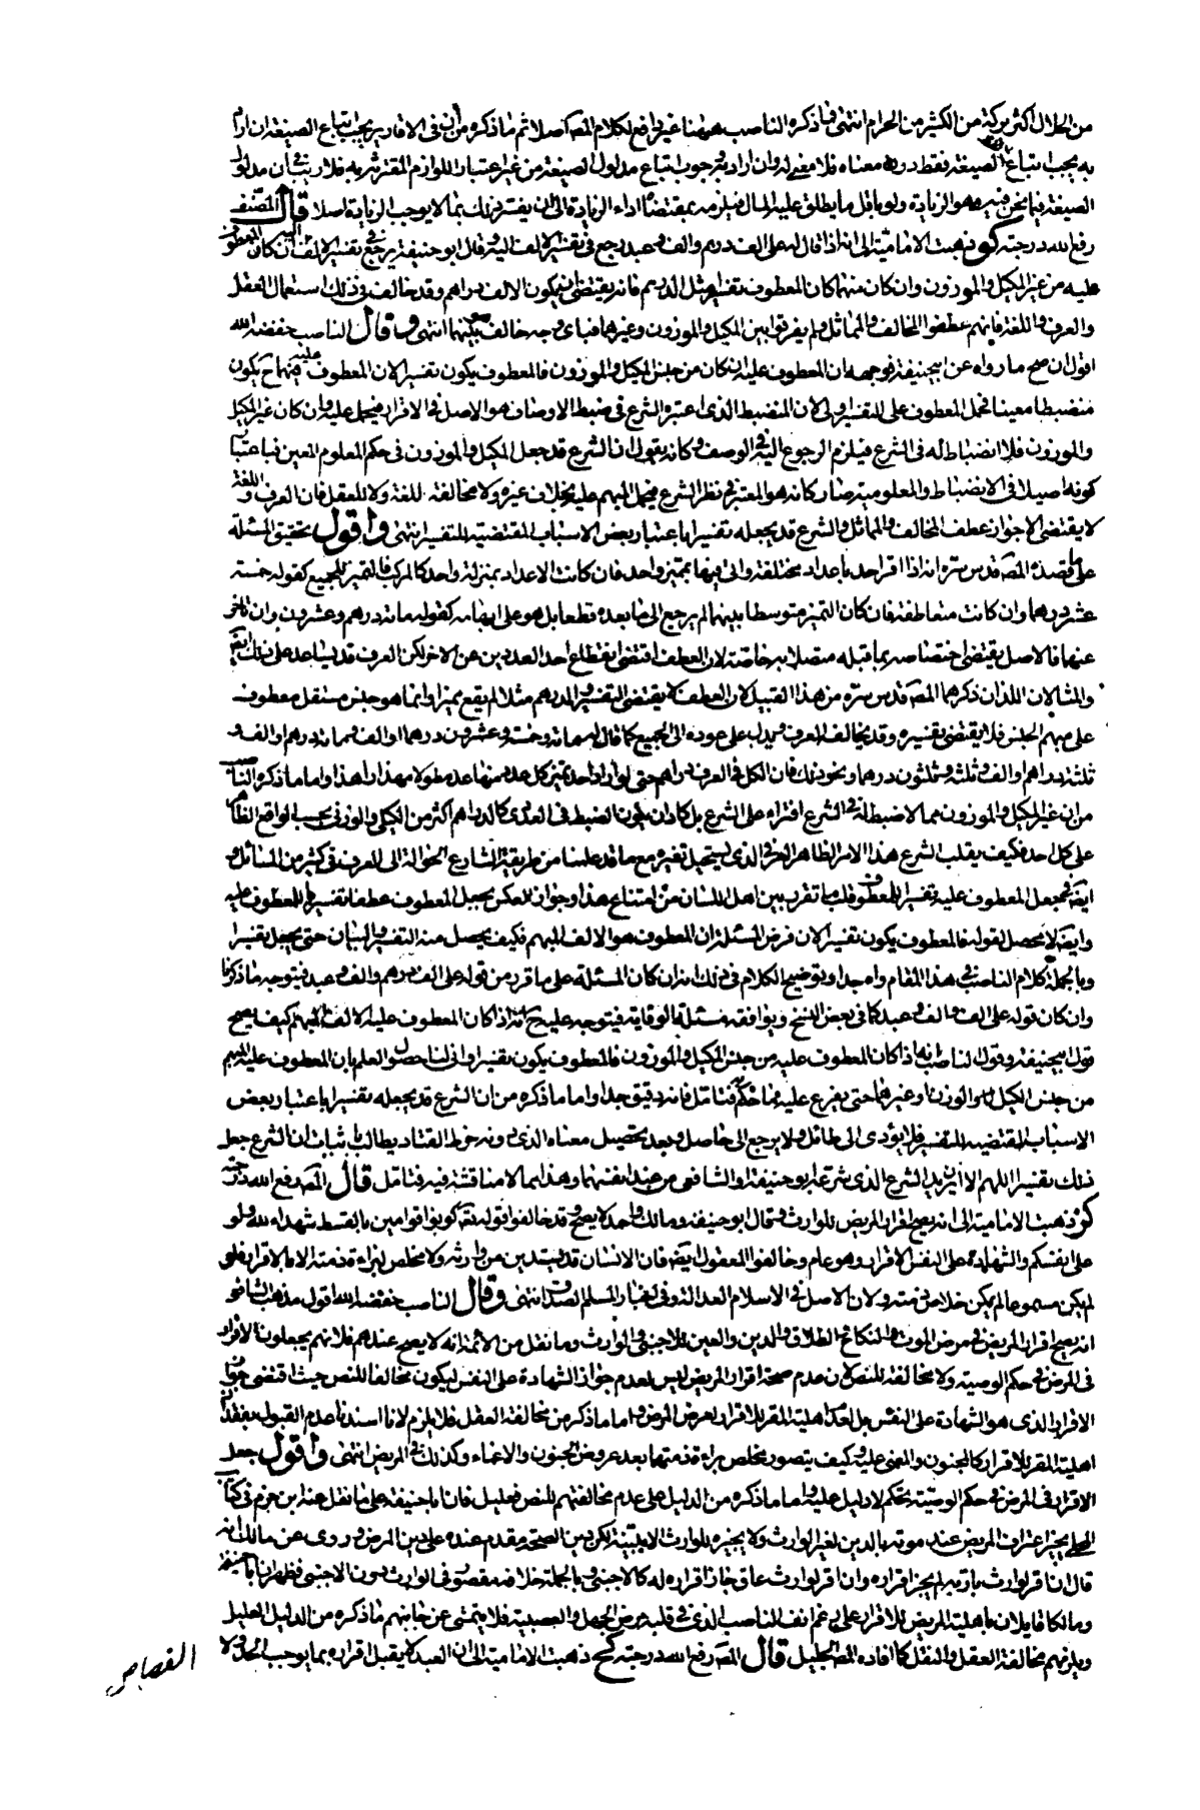 من الحلال اكثر بركة من الكثير من الحرام انتهى فما ذكره الناصب ههنا غير رافع لكلام المصنف اصلا ثم ما ذكره من ان في الاقارير يجب اتباع الصيغة ان اراد
به يجب اتباع الصيغة فقط دون معناه فلا معنى له وان اراد به وجوب اتباع مدلول الصيغة من غير اعتبار اللوازم المقترنة به فلا ريب في ان مدلول
الصيغة فيما نحن فيه هو الزيادة ولو باقل ما يطلق عليه المال فيلزمه بمقتضاه اداء الزيادة الى ان يفسر ذلك بما لا يوجب الزيادة اصلا قال المصنف
رفع الله درجته كو ذهبت الامامية الى انه اذا قال له على الف درهم والف وعبد رجع في تفسير الالف اليه وقال ابو حنيفة يرجع في تفسير الالف ان كان المعطوف
عليه من غير المكيل والموزون وان كان منهما كان المعطوف تفسيرا مثل الف درهم فانه يقتضي ان يكون الالف دراهم وقد خالف في ذلك استعمال العقل
والعرف واللغة فانهم عطفوا المخالف والمماثل ولم يفرقوا بين المكيل والموزون وغيرهما فباى وجه خالف بينهما انتهى وقال الناصب خفضه الله
اقول ان صح ما رواه عن ابي حنيفة فوجهه ان المعطوف عليه ان كان من جنس المكيل والموزون فالمعطوف يكون تفسيرا لان المعطوف عليه فيهما ح يكون
منضبطا معينا فحمل المعطوف على التفسير اولى لان المنضبط الذى اعتبره الشرع في ضبط الاوصاف هو الاصل في الاقرار فيحمل عليه وان كان غير المكيل
والموزون فلا انضباط له في الشرع فيلزم الرجوع اليه في الوصف وكانه يقول ان الشرع قد جعل المكيل والموزون في حكم المعلوم المعين فباعتبار
كونه اصيلا في الانضباط والمعلومية صار كانه هو المعتبر في نظر الشرع فيحمل المبهم عليه بخلاف غيره ولا مخالفة للغة ولا للعقل فان العرف واللغة
لا يقتضي الا جواز عطف المخالف والمماثل والشرع قد يجعله تفسيرا باعتبار بعض الاسباب المقتضية للتفسير انتهى واقول تحقيق المسئلة
على ما قصده المصنف قدس سره انه اذا اقر احد باعداد مختلفة واتى فيها بمميز واحد فان كانت الاعداد بمنزلة واحد كالمركب فالتمييز للجميع كقوله خمسة
عشر درهما وان كانت متعاطفة فان كان التميز متوسطا بينهما لم يرجع الى ما بعده قطعا بل هو على ابهامه كقوله مائة درهم وعشرون وان تاخر
عنهما فالاصل يقتضي اختصاصه بما قبله متصلا به خاصة لان العطف اقتضى انقطاع احد العددين عن الاخر لكن العرف قد يساعد على ذلك ايضا
والمثالان اللذان ذكرهما المصنف قدس سره من هذا القبيل لان العطف لا يقتضي التفسير والدرهم مثلا لم يقع مميزا وانما هو جنس مستقل معطوف
على مبهم الجنس فلا يقتضي تفسيره وقد يخالف العرف ويدل على عوده الى الجميع كما قال له مائة وخمسة وعشرون درهما او الف ومائة درهم او الف و
ثلثة دراهم او الف وثلثة وثلثون درهما ونحو ذلك فان الكل في العرف دراهم حتى لو اراد احد تميز كل عدد منها عد مطولا مهذارا هذا واما ما ذكره الناصب
من ان غير المكيل والموزون مما لا ضبط له في الشرع افتراء على الشرع بل كاد ان يكون الضبط في العددي كالدراهم اكثر من الكيلي والوزني بحسب الواقع الظاهر
على كل احد فكيف يقلب الشرع هذا الامر الظاهر العرفي الذى يستحيل تغيره مع ما قد علمنا من طريقة الشارع الحوالة الى العرف في كثير من المسائل و
ايضا فجعل المعطوف عليه تفسيرا للمعطوف قلب ما تقرر بين اهل اللسان من امتناع هذا وجواز العكس بجعل المعطوف عطفا تفسيريا للمعطوف عليه
وايضا لا محصل لقوله فالمعطوف يكون تفسيرا لان فرض المسئلة ان المعطوف هو الالف المبهم فكيف يحصل منه التفسير والبيان حتى يجعل تفسيرا
وبالجملة كلام الناصب في هذا المقام واه جدا وتوضيح الكلام في ذلك انه ان كان المسئلة على ما قرر من قوله على الف درهم والف وعبد فيتوجه ما ذكرنا
وان كان قوله على الف والف وعبد كما في بعض النسخ ويوافقه مسئلة الوقاية فيتوجه عليه ح انه اذا كان المعطوف عليه الالف المبهم كيف يصح
قول ابي حنيفة وقول الناصب انه اذا كان المعطوف عليه من جنس المكيل والموزون فالمعطوف يكون تفسيرا وانى لنا حصول العلم بان المعطوف عليه المبهم
من جنس المكيل والموزون او غيرهما حتى يفرع عليه ما حكم فتامل فانه دقيق جدا واما ما ذكره من ان الشرع قد يجعله تفسيرا باعتبار بعض
الاسباب المقتضية للتفسير فلا يؤدى الى طائل ولا يرجع الى حاصل وبعد تحصيل معناه الذى دونه خرط القتاد يطالب باثبات ان الشرع جعل
ذلك تفسيرا اللهم الا ان يريد الشرع الذى شرعه ابو حنيفة والشافعي من عند انفسهما وهذا مما لا مناقشة فيه فتامل قال المصنف رفع الله درجته
كز ذهبت الامامية الى انه يصح اقرار المريض للوارث وقال ابو حنيفة ومالك واحمد لا يصح وقد خالفوا قوله تعالى كونوا قوامين بالقسط شهداء لله ولو
على انفسكم والشهادة على النفس الاقرار وهو عام وخالفوا المعقول ايضا فان الانسان قد يستدين من وارثه ولا مخلص لبراءة ذمته الا بالاقرار فلو
لم يكن مسموعا لم يكن خلاص ذمته ولان الاصل في الاسلام العدالة وفي اخبار المسلم الصدق انتهى وقال الناصب خفضه الله اقول مذهب الشافعي
انه يصح اقرار المريض في مرض الموت والنكاح والطلاق والدين والعين للاجنبي والوارث وما نقل من الائمة انه لا يصح عندهم فلانهم يجعلون الاقرار
في المرض في حكم الوصية ولا مخالفة للنص لان عدم صحة اقرار المريض ليس لعدم جواز الشهادة على النفس ليكون مخالفا للنص حيث اقتضى جواز
الاقرار الذى هو الشهادة على النفس بل لعدم اهلية المقر للاقرار لعرض المرض واما ما ذكر من مخالفة العقل فلا يلزم لانا اسندنا عدم القبول بفقدان
اهلية المقر للاقرار كالمجنون والمغمى عليه وكيف يتصور مخلص براءة ذمتهما بعد عروض الجنون والاغماء وكذلك في المريض انتهى واقول جعل
الاقرار في المرض في حكم الوصية تحكم لا دليل عليه واما ما ذكره من الدليل على عدم مخالفتهم للنص فعليل فان ابا حنيفة على ما نقل عنه ابن حزم في كتاب
المحلى يجيز اعتراف المريض عند موته بالدين لغير الوارث ولا يجيزه للوارث الا ببينة لكن دين الصحة مقدم عنده على دين المرض وروى عن مالك انه
قال ان اقر لوارث بار به لم يجز اقراره وان اقر لوارث عاق جاز اقراره له كالاجنبي وبالجملة خلافه مقصور في الوارث دون الاجنبي فظهر ان ابا حنيفة
ومالكا قايلان باهلية المريض للاقرار على رغم انف الناصب الذى في قلبه مرض الجهل والعصبية فلا يتمشى عن جانبهم ما ذكره من الدليل العليل
ويلزمهم مخالفة العقل والنقل كما افاده المصنف الجليل قال المصنف رفع الله درجته كح ذهبت الامامية الى ان العبد لا يقبل اقراره بما يوجب الحد ولا
القصاص